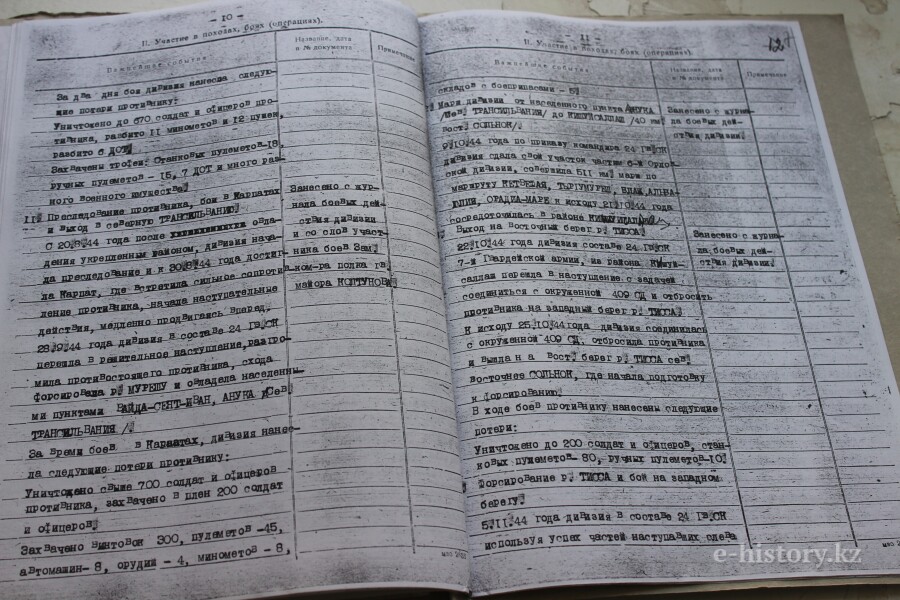 - 10 -
II. Участие в походах, боях (операциях).
Важнейшие события
Название, дата и № документа
Примечание
За два дня боя дивизия нанесла следую-
щие потери противнику:
Уничтожено до 670 солдат и офицеров про-
тивника, разбито 11 минометов и 12 пушек,
разбито 6 ДОТ.
Захвачены трофеи: Станковых пулеметов-18,
ручных пулеметов - 15, 7 ДОТ и много раз-
ного военного имущества.
11. Преследование противника, бои в Карпатах
и выход в северную ТРАНСИЛЬВАНИЮ.
С 20.8.44 года после овла-
дения укрепленным районом, дивизия нача-
ла преследование и к 30.8.44 года достиг-
ла Карпат, где встретила сильное сопротив-
ление противника, начала наступательные
действия, медленно продвигаясь вперед.
28.9.44 года дивизия в составе 24 ГВ.СК
перешла в решительное наступление, разгро-
мила противостоящего противника, сходу
форсировала р. МУРЕШУ и овладела населенны-
ми пунктами ВАЙДА-СЕНТ-ИВАН, АНУКА /Сев.
ТРАНСИЛЬВАНИЯ /.
За время боев в Карпатах, дивизия нанес-
ла следующие потери противнику:
Уничтожено свыше 700 солдат и офицеров
противника, захвачено в плен 200 солдат
и офицеров.
Захвачено винтовок 300, пулеметов -45,
автомашин- 8, орудий - 4, минометов - 8,
Занесено с жур-
нала боевых дей-
ствия дивизии
и со слов участ-
ника боев Зам.
ком-ра полка гв.
майора КОЛТУНОВА
- 11 -
II. Участие в походах, боях (операциях).
Важнейшие события
Название, дата и № документа
Примечание
складов с боеприпасами - 5.
Марш дивизии от населенного пункта АНУКА
/Сев. ТРАНСИЛЬВАНИЯ/ до /40 км.
Вост. СОЛЬНОК/.
9.10.44 года по приказу командира 24 ГВ.СК
дивизия сдала свой участок частям 6-й Орлов
ской дивизии, совершила 511 км. марш по
маршруту
ЮЛИЯ, ОРАДИА-МАРЕ к исходу 21.10.44 года
сосредоточилась в районе
Выход на Восточный берег р. ТИССА.
22.10.44 года дивизия составе 24 ГВ.СК
7-й Гвардейской армии, из района
саллаш перешла в наступление с задачей
соединиться с окруженной 409 СД и отбросить
противника на западный берег р. ТИССА.
К исходу 25.10.44года дивизия соединилась
с окруженной 409 СД, отбросила противника
и вышла на Вост. берег р. ТИССА сев.
восточнее СОЛЬНОК, где начала подготовку
к форсированию.
В ходе боев противнику нанесены следующие
потери:
Уничтожено до 200 солдат и офицеров, стан-
ковых пулеметов- 80, ручных пулеметов-10.
Форсирование р. ТИССА и бой на западном
берегу.
5.11.44 года дивизия в составе 24 ГВ.СК
используя успех частей наступавших слева
Занесено с журна-
ла боевых дей-
ствия дивизии.
Занесено с журна-
ла боевых дей-
ствия дивизии.
e-history.kz